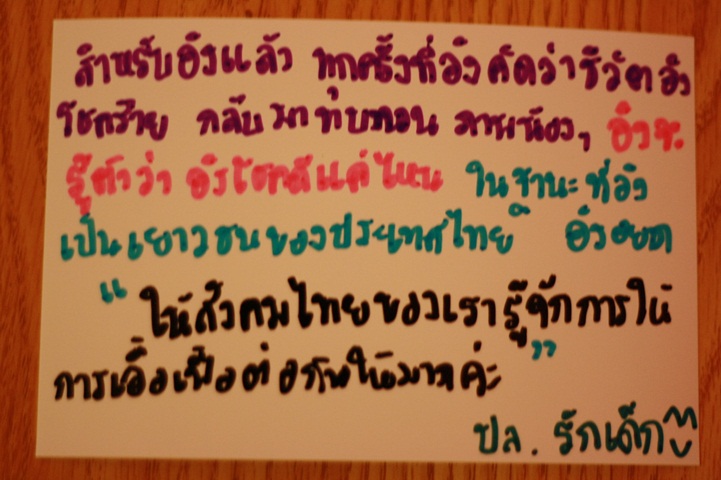 สำหรับอิงแล้ว ทุกครั้งที่อิงคิดว่าชีวิตอิง
โชคร้าย กลับมาทบทวน ภาพน้องๆ อิงจะ
รู้ตัวว่า อิงโชคดีแค่ไหน ในฐานะที่อิง
เป็นเยาวชนของประเทศไทย อิงอยาก
"ให้สังคมไทยของเรารู้จักการให้
การเอื้อเฟื้อต่อกันให้มากค่ะ"
ปล. รักเด็ก